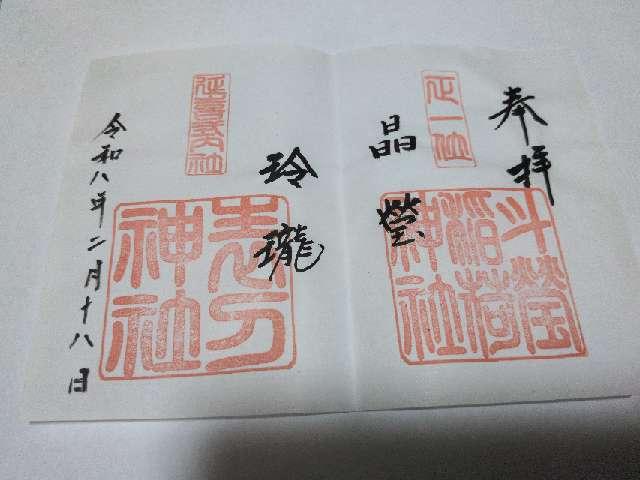 奉拝
正一位
斗瑩稲荷神社
晶瑩
玲瓏
延喜式内社
志分神社
令和八年二月十八日